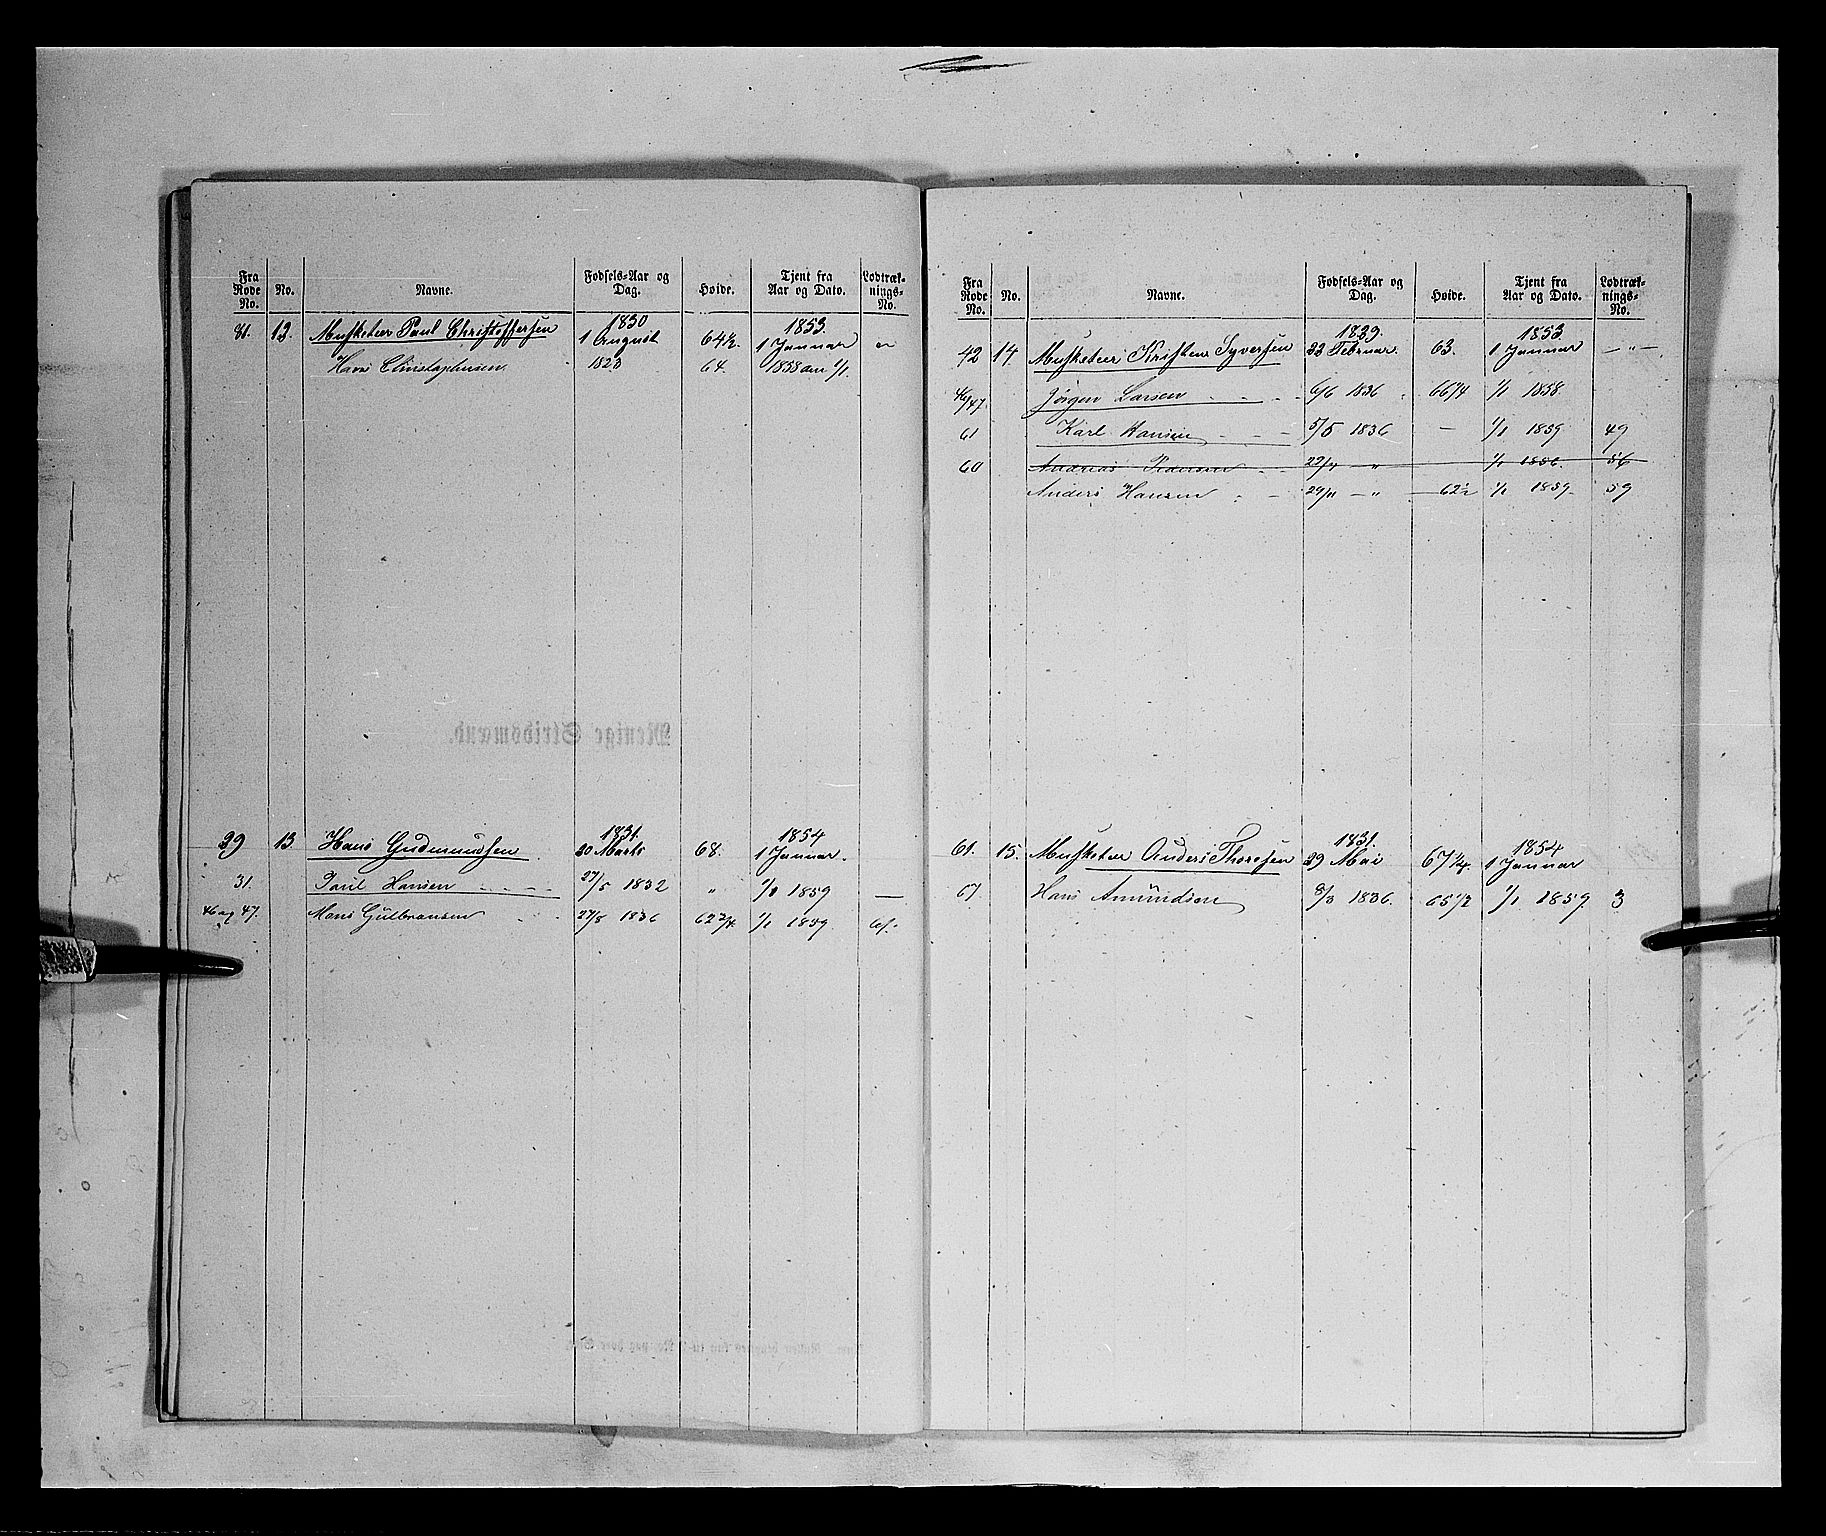 Fra Rode No. No. Navne. Fødsels-Aar og Dag. Høide. Tjent fra Aar og Dato. Lodtræk-nings-No.
81. 12. Musketeer Paul Christoffersen 1830 1 August 64½. 1853. 1 Januar
Hans Christophersen 1828 64. 1858 am 1/1.
Menige Stridsmænd.
29 13 Hans Gudmundsen 1831. 20 Marts 68. 1854 1 Januar.
31. Paul Hansen 27/5 1832 " 1/1 1859 —
46 og 47. Hans Gulbransen 27/8 1836 62¾ 1/1 1859.
Fra Rode No. No. Navne. Fødsels-Aar og Dag. Høide. Tjent fra Aar og Dato. Lodtræk-nings-No.
42 14. Musketeer Kristen Syversen 1829. 23 Februar. 63. 1853 1 Januar — " —
46/47. Jørgen Larsen 6/6 1836 66¾ 1/1 1858.
61 Karl Hansen 5/5 1836 — 1/1 1859 49
60 Andreas Pedersen 22/4 " 1/1 1856. 56
Anders Hansen 29/11 — " 62½ 1/1 1859. 59
61. 15. Musketeer Anders Thoresen 1831. 29 Mai 67¼ 1854 1 Januar
67. Hans Amundsen 8/3 1836. 65½ 1/1 1859 3